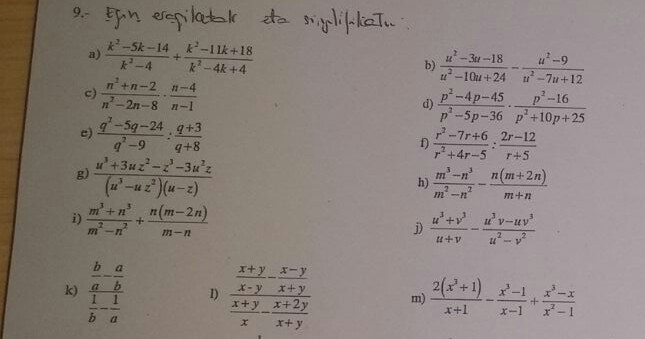 9.- Egin eragiketak eta sinplifikatu:
a) \frac{k^2-5k-14}{k^2-4} + \frac{k^2-11k+18}{k^2-4k+4}
b) \frac{u^2-3u-18}{u^2-10u+24} - \frac{u^2-9}{u^2-7u+12}
c) \frac{n^2+n-2}{n^2-2n-8} \cdot \frac{n-4}{n-1}
d) \frac{p^2-4p-45}{p^2-5p-36} \cdot \frac{p^2-16}{p^2+10p+25}
e) \frac{q^2-5q-24}{q^2-9} : \frac{q+3}{q+8}
f) \frac{r^2-7r+6}{r^2+4r-5} : \frac{2r-12}{r+5}
g) \frac{u^3+3uz^2-z^3-3u^2z}{(u^3-uz^2)(u-z)}
h) \frac{m^3-n^3}{m^2-n^2} - \frac{n(m+2n)}{m+n}
i) \frac{m^3+n^3}{m^2-n^2} + \frac{n(m-2n)}{m-n}
j) \frac{u^3+v^3}{u+v} - \frac{u^3v-uv^3}{u^2-v^2}
k) \frac{\frac{b}{a}-\frac{a}{b}}{\frac{1}{b}-\frac{1}{a}}
l) \frac{\frac{x+y}{x-y}-\frac{x-y}{x+y}}{\frac{x+y}{x}-\frac{x+2y}{x+y}}
m) \frac{2(x^3+1)}{x+1} - \frac{x^3-1}{x-1} + \frac{x^3-x}{x^2-1}